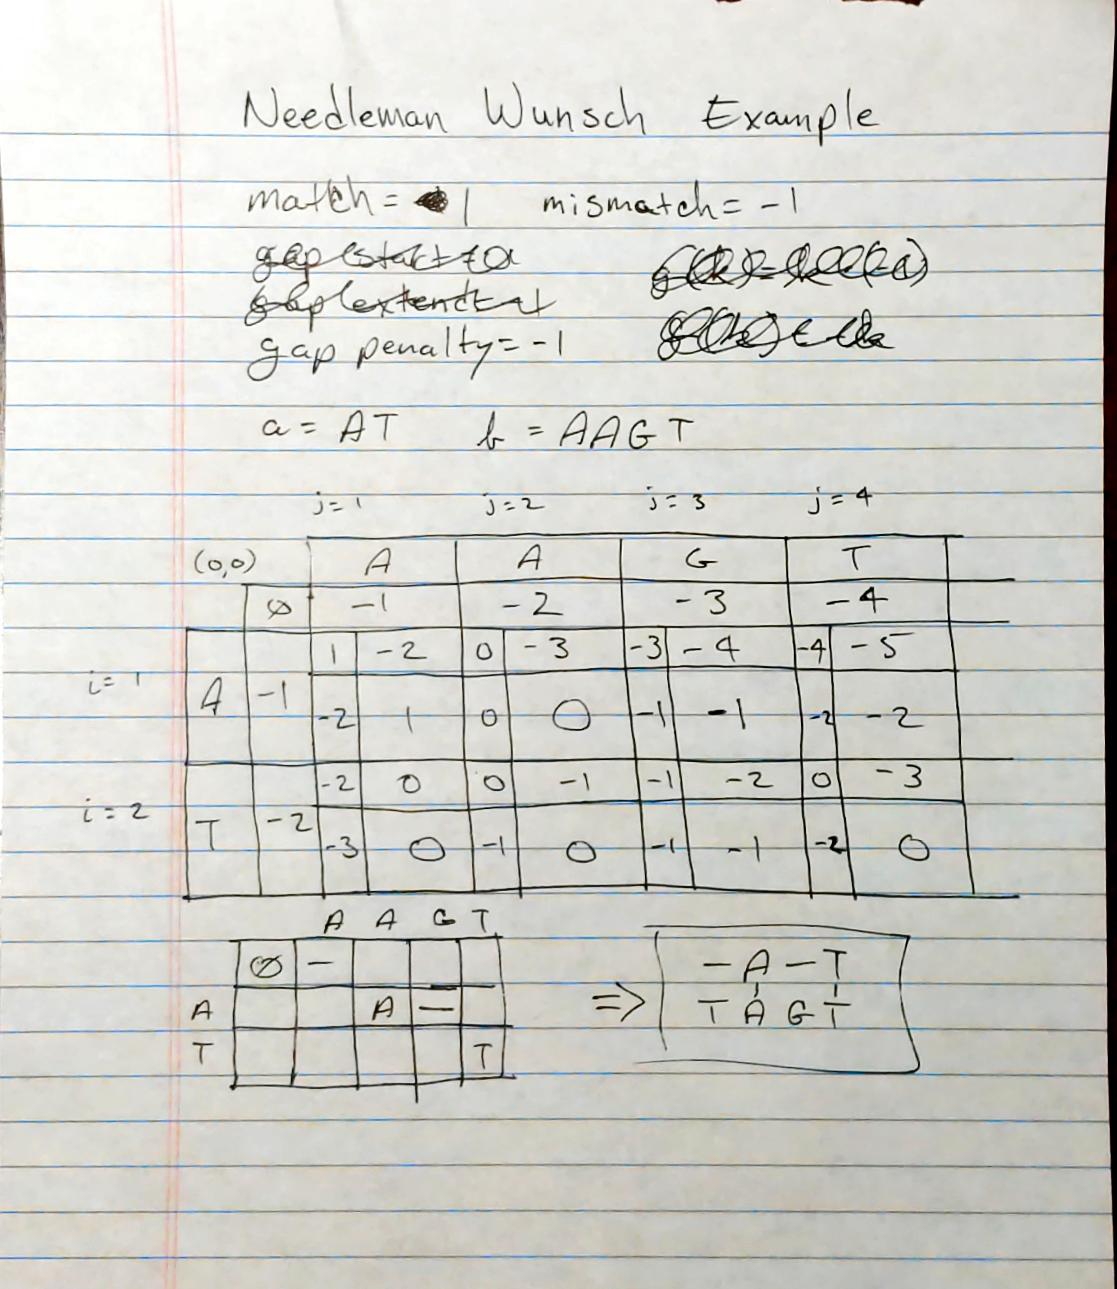 Needleman Wunsch Example
match = 1 mismatch = -1
gap penalty = -1
a = AT b = AAGT
j = 1 j = 2 j = 3 j = 4
(0,0) A A G T
∅ -1 -2 -3 -4
1 -2 0 -3 -3 -4 -4 -5
i = 1 A -1 -2 1 0 0 -1 -1 -2 -2
-2 0 0 -1 -1 -2 0 -3
i = 2 T -2 -3 0 -1 0 -1 -1 -2 0
A A G T
∅ –
A A –
T T
=> – A – T
T A G T